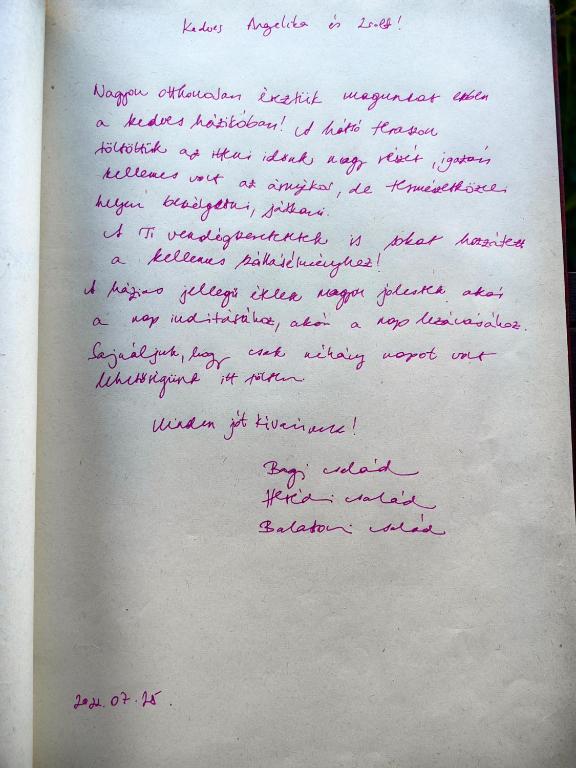 Kedves Angelika és Zsolt!
Nagyon otthonosan éreztük magunkat ebben
a kedves házikóban! A hátsó teraszon
töltöttük az itteni időnk nagy részét, igazán
kellemes volt az árnyékos, de természetközeli
helyen beszélgetni, játszani.
A Ti vendégszeretetetek is sokat hozzátett
a kellemes szállásélményhez!
A házias jellegű ételek nagyon jólestek akár
a nap indításához, akár a nap lezárásához.
Sajnáljuk, hogy csak néhány napot volt
lehetőségünk itt tölteni.
Minden jót kívánunk!
Bagi család
család
Balatoni család
07.25.